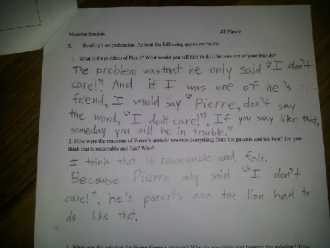 Maurice Sendak Pierre
2. Reading Comprehension. Answer the following questions
1. What is the problem of Pierre? What would you tell him to do if he was one of your friends?
The problem was that he only said "I don't
care!" And if I was one of he's
friend, I would say "Pierre, don't say
the word, "I don't care!". If you say like that,
someday you will be in trouble."
2. How were the reactions of Pierre's parents and his lion? Do you
think that is reasonable and fair? Why?
I think that is reasonable and fair.
Because Pierre only said "I don't
care!", he's parents and the lion had to
do like that.